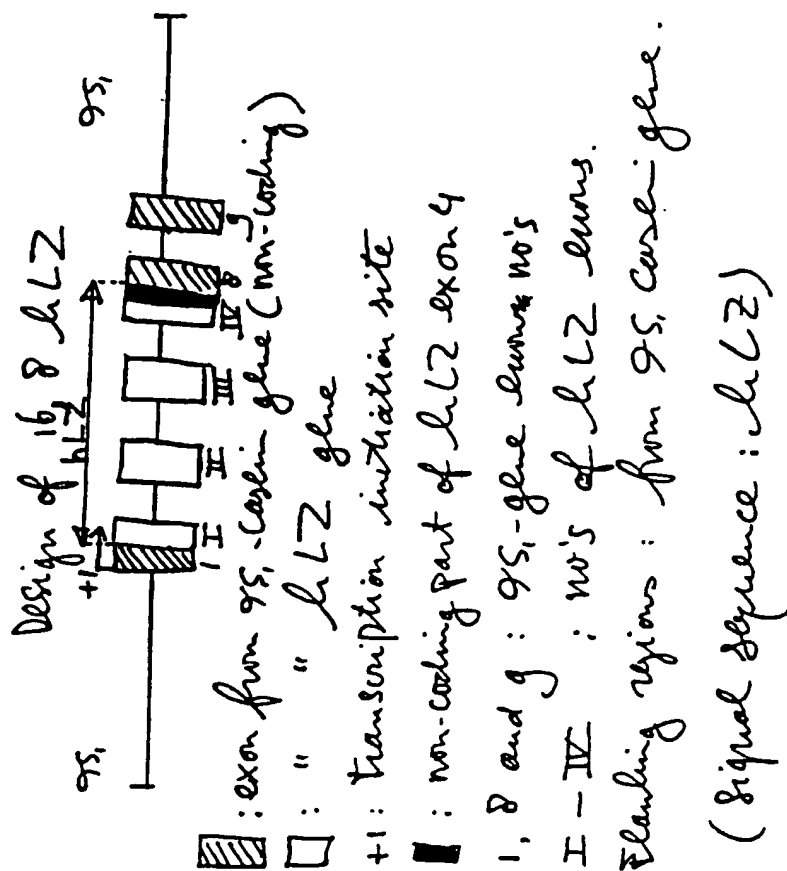 Design of 16, 8 hLZ
αS₁ hLZ αS₁
+1
1 I II III IV 8 9
: exon from αS₁-casein gene (non-coding)
: " " hLZ gene
+1 : transcription initiation site
: non-coding part of hLZ exon 4
1, 8 and 9 : αS₁-gene no's
I - IV : no's of hLZ exons.
Flanking regions : from αS₁ casein gene.
(signal sequence : hLZ)